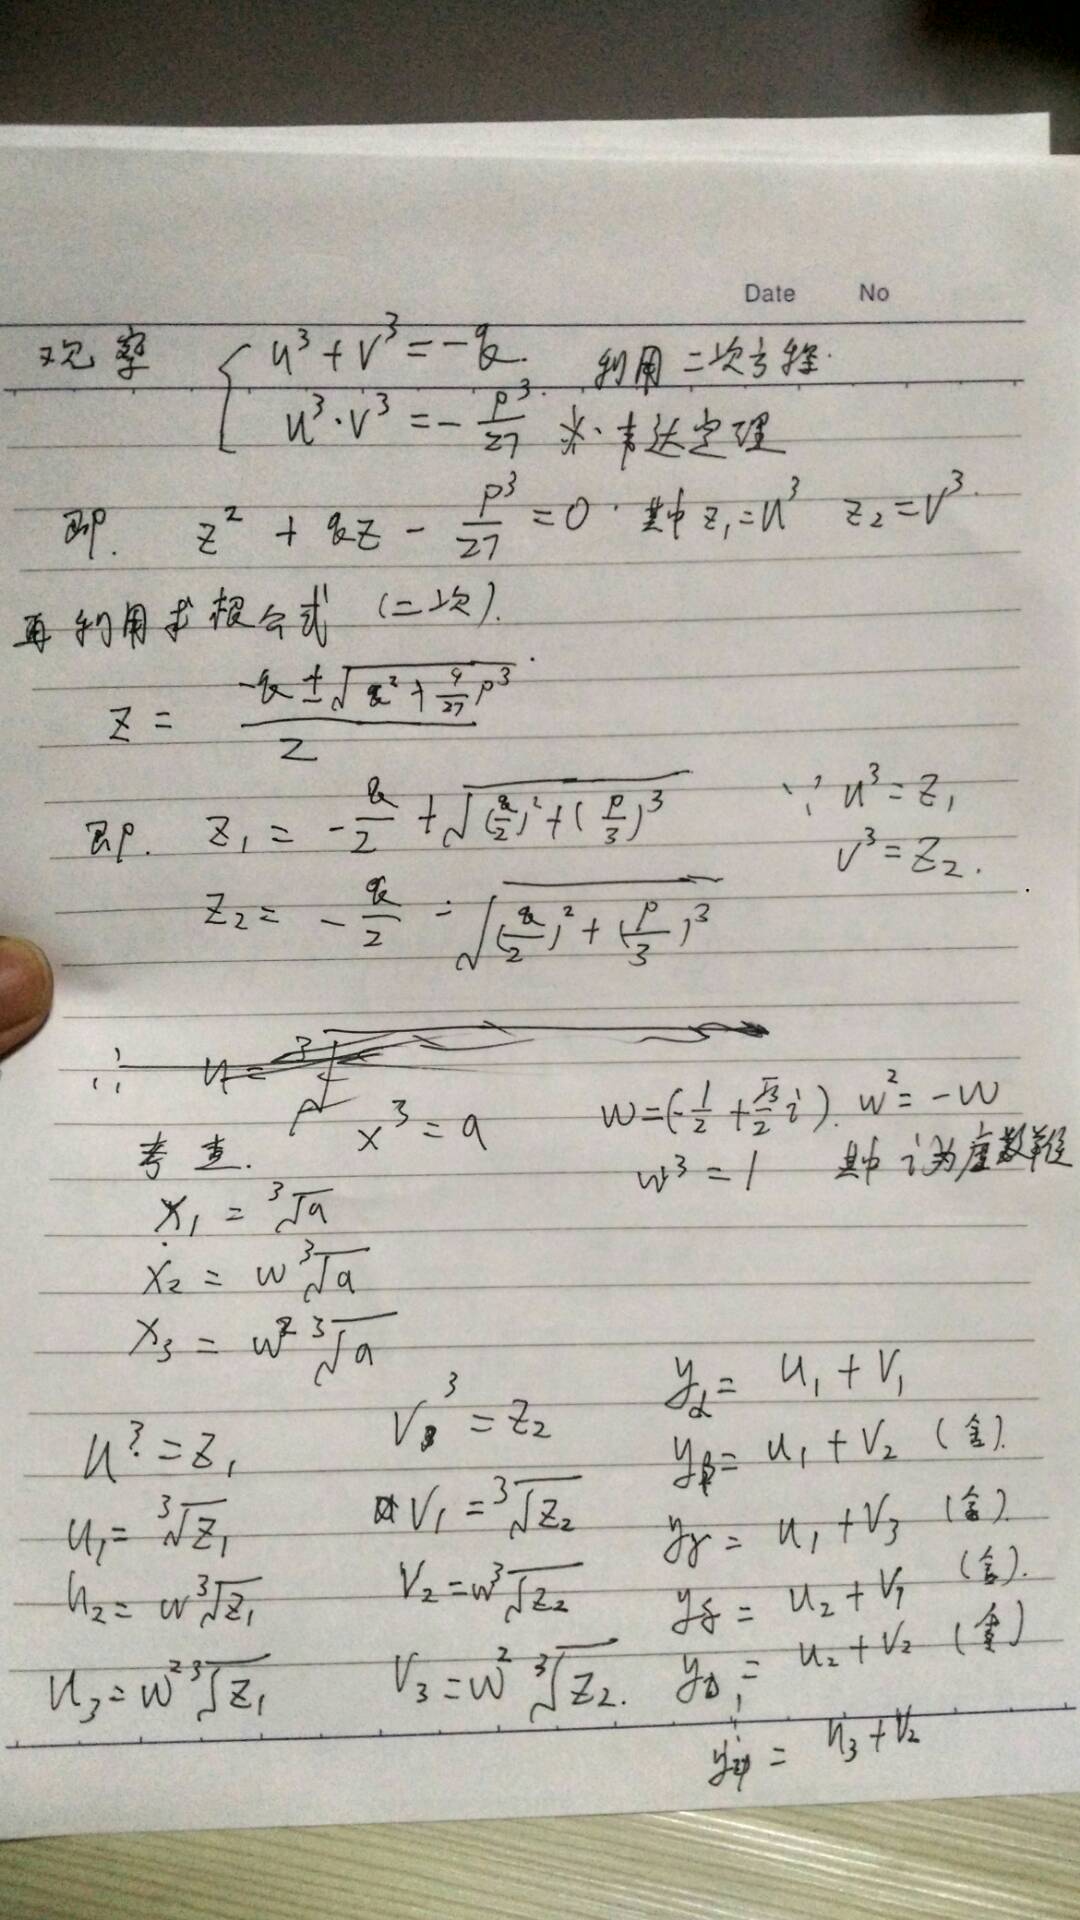 Date No
观察 { u³+v³=-q. 利用二次方程.
u³·v³=-p³/27. 韦达定理
即. z² + qz - p³/27 = 0. 其中 z₁=u³ z₂=v³.
再利用求根公式 (二次).
z = (-q±√(q²+4/27 p³))/2
即. z₁ = -q/2 +√((q/2)²+(p/3)³) ∵ u³=z₁
v³=z₂.
z₂= -q/2 - √((q/2)²+(p/3)³)
∴
考查. x³=a w=(-1/2+√3/2 i). w²=-w
w³=1 其中i为虚数单位
x₁ = ³√a
x₂ = w³√a
x₃ = w² ³√a
u³=z₁ v³=z₂ yα= u₁+v₁
u₁= ³√z₁ v₁=³√z₂ yβ= u₁+v₂ (舍).
u₂= w³√z₁ v₂=w³√z₂ yγ= u₁+v₃ (舍).
u₃=w² ³√z₁ v₃=w² ³√z₂. yδ= u₂+v₁ (舍).
y = u₂+v₂ (舍)
y = u₃+v₂